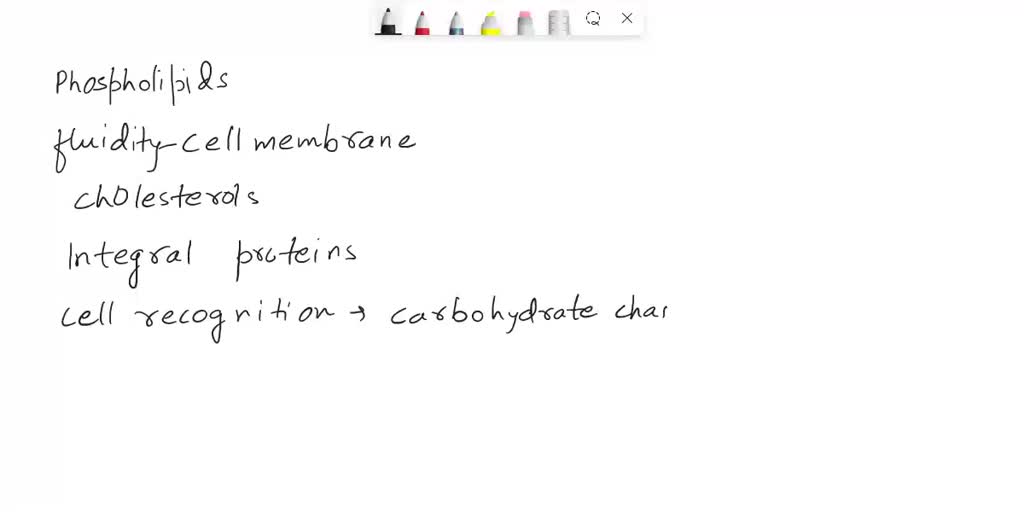 Phospholipids
fluidity-cell membrane
cholesterols
Integral proteins
cell recognition → carbohydrate chai